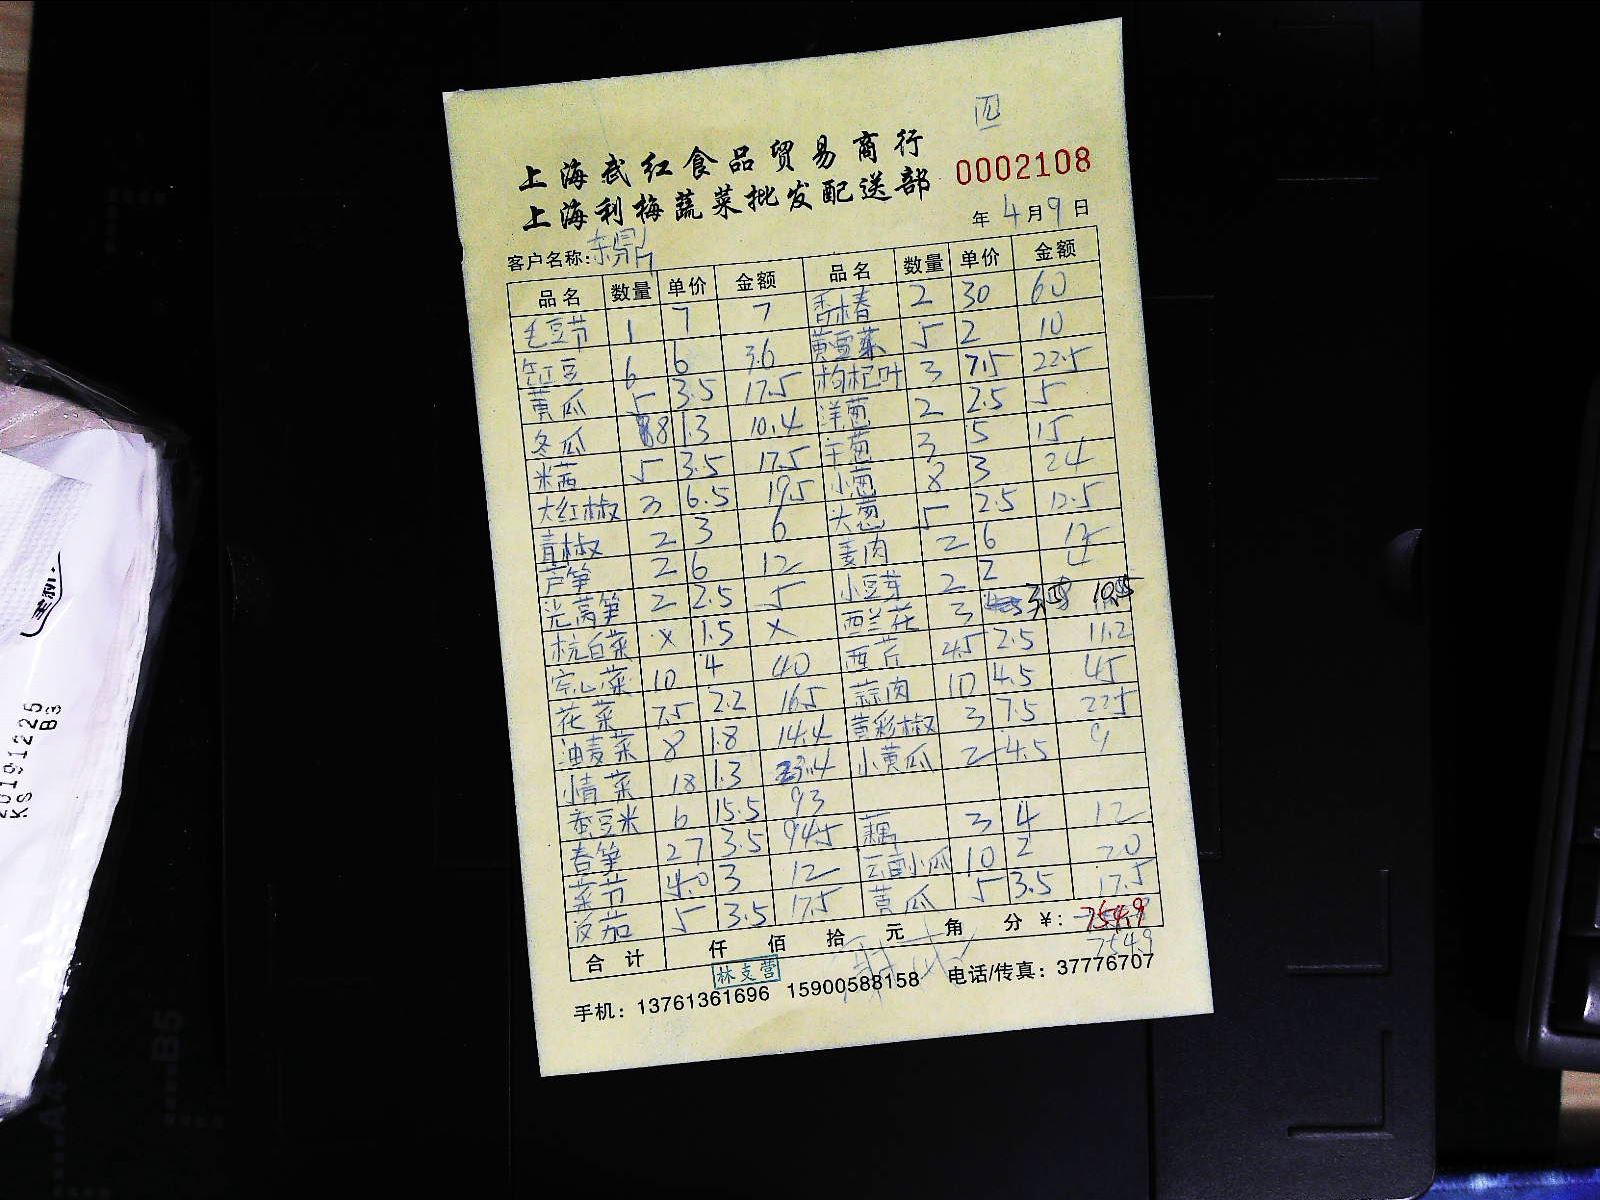 四
上海武红食品贸易商行
上海利梅蔬菜批发配送部
0002108
年 4月9日
客户名称: 鼎
品名 数量 单价 金额 品名 数量 单价 金额
毛豆节 1 7 7 香椿 2 30 60
豇豆 6 6 36 黄豆菜 5 2 10
黄瓜 5 3.5 17.5 枸杞叶 3 7.5 22.5
冬瓜 8 1.3 10.4 洋葱 2 2.5 5
米苋 5 3.5 17.5 干葱 3 5 15
大红椒 3 6.5 19.5 小葱 8 3 24
青椒 2 3 6 大葱 5 2.5 12.5
芦笋 2 6 12 姜肉 2 6 12
光莴笋 2 2.5 5 小豆芽 2 2 4
杭白菜 x 1.5 x 西兰花 3 3.5 10.5
空心菜 10 4 40 西芹 4.5 2.5 11.2
花菜 7.5 2.2 16.5 蒜肉 10 4.5 45
油麦菜 8 1.8 14.4 黄彩椒 3 7.5 22.5
情菜 18 1.3 23.4 小黄瓜 2 4.5 9
蚕豆米 6 15.5 93
春笋 27 3.5 94.5 藕 3 4 12
菜节 4.0 3 12 小瓜 10 2 20
茄 5 3.5 17.5 黄瓜 5 3.5 17.5
合计 仟 佰 拾 元 角 分 ¥: 754.9
754.9
林支营
手机: 13761361696 15900588158 电话/传真: 37776707
20191225
KS B3
B5